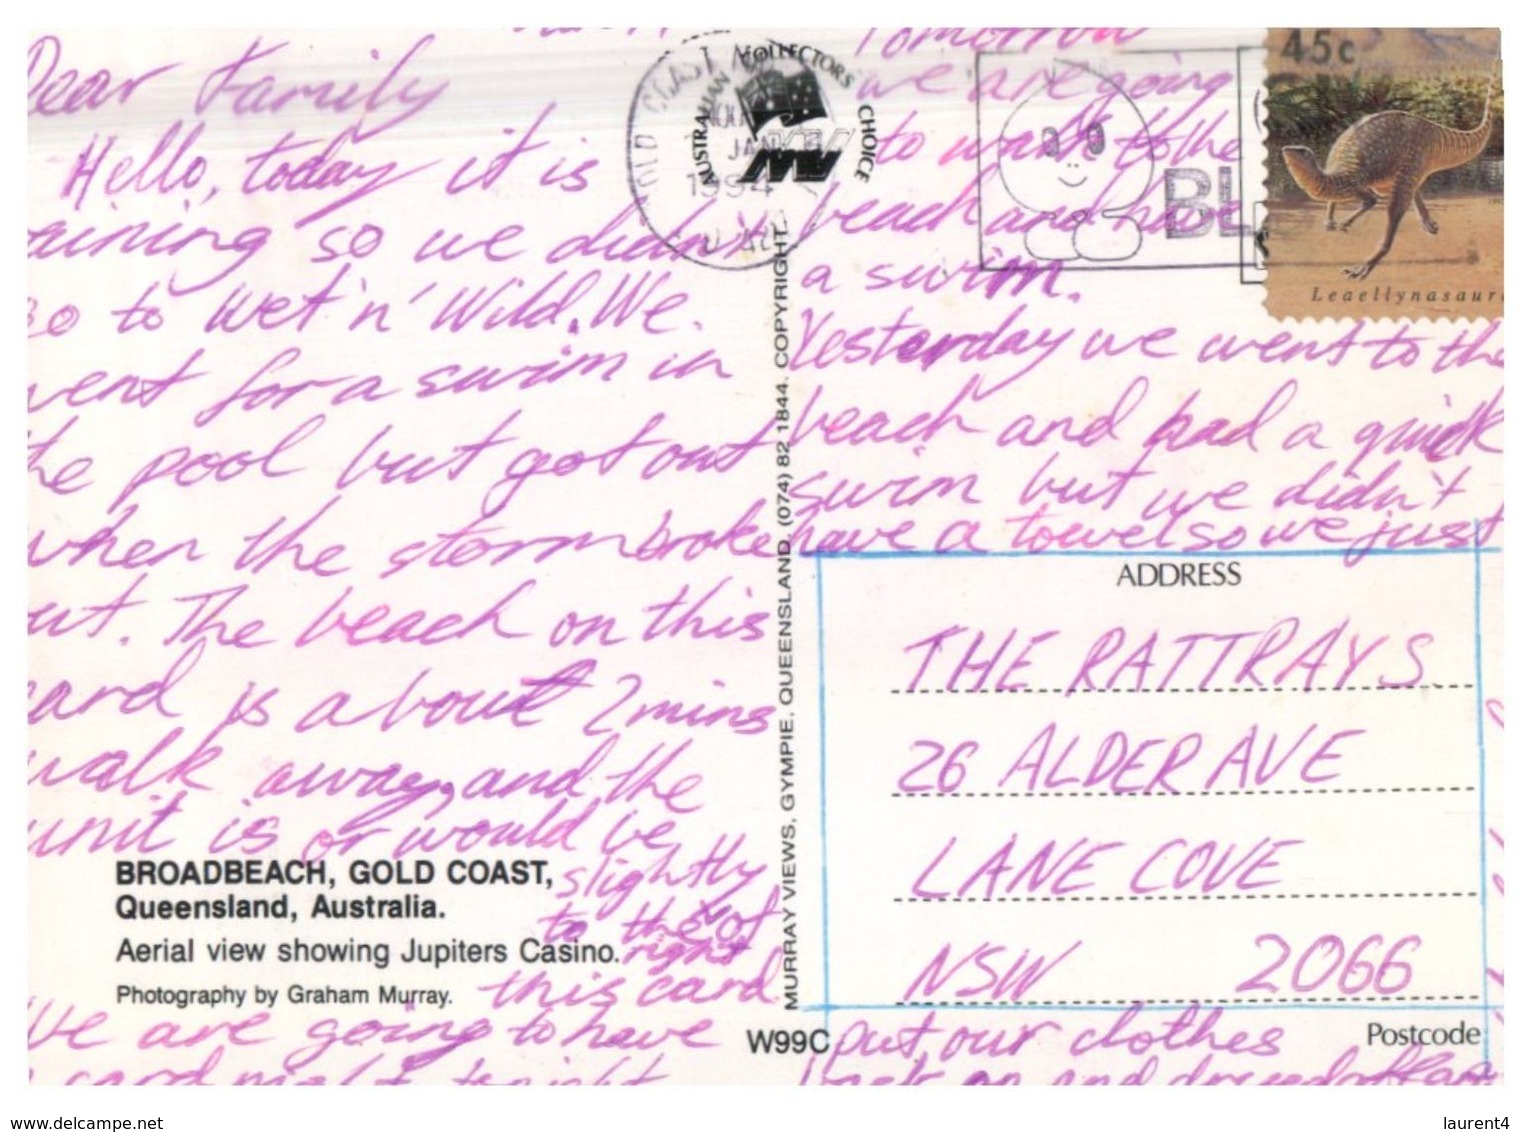 Dear Family
Hello, today it is
raining so we didn't
go to Wet 'n' Wild. We
went for a swim in
the pool but got out
when the storm broke
out. The beach on this
card is about 2 mins
walk away, and the
unit is or would be
slightly
to the
right of
this card
We are going to have
a card night tonight
BROADBEACH, GOLD COAST,
Queensland, Australia.
Aerial view showing Jupiters Casino.
Photography by Graham Murray.
MURRAY VIEWS, GYMPIE, QUEENSLAND. (074) 82 1844. COPYRIGHT.
W99C
AUSTRALIAN COLLECTORS CHOICE
GOLD COAST
JAN
1994
45c
Leaellynasaur
BL
Tomorrow
we are going
to walk to the
beach and have
a swim.
Yesterday we went to the
beach and had a quick
swim but we didn't
have a towel so we just
put our clothes
back on and dried off
ADDRESS
THE RATTRAYS
26 ALDER AVE
LANE COVE
NSW 2066
Postcode
www.delcampe.net
laurent4